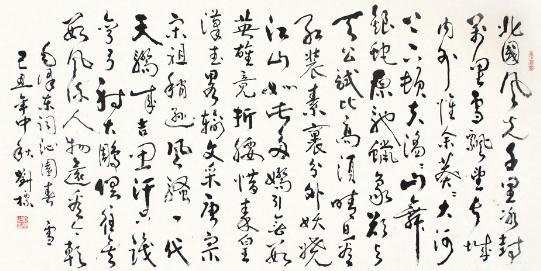 北國風光千里冰封
萬里雪飄望長城
内外惟余莽莽大河
上下頓失滔滔山舞
銀蛇原馳蠟象欲与
天公試比高須晴日看
紅裝素裹分外妖嬈
江山如此多嬌引無數
英雄竞折腰惜秦皇
漢武略輸文采唐宗
宋祖稍遜風騷一代
天驕成吉思汗只識
彎弓射大鵰俱往矣
數風流人物還看今朝
毛澤東詞沁園春 雪
己丑年中秋劉